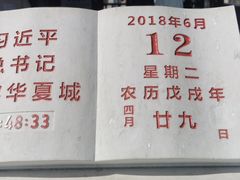 习近平
总书记
华夏城
:48:33
2018年6月
12
星期二
农历戊戌年
四月
廿九
日